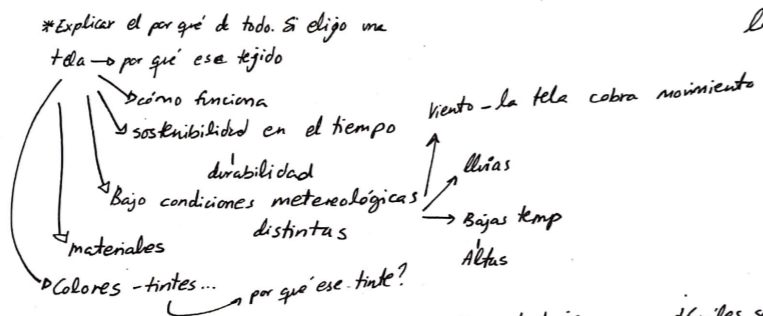 *Explicar el por qué de todo. Si elijo una
tela → por qué ese tejido
cómo funciona
sostenibilidad en el tiempo
durabilidad
Bajo condiciones metereológicas
distintas
Viento - la tela cobra movimiento
lluvias
Bajas temp
Altas
materiales
Colores - tintes...
por qué ese tinte?